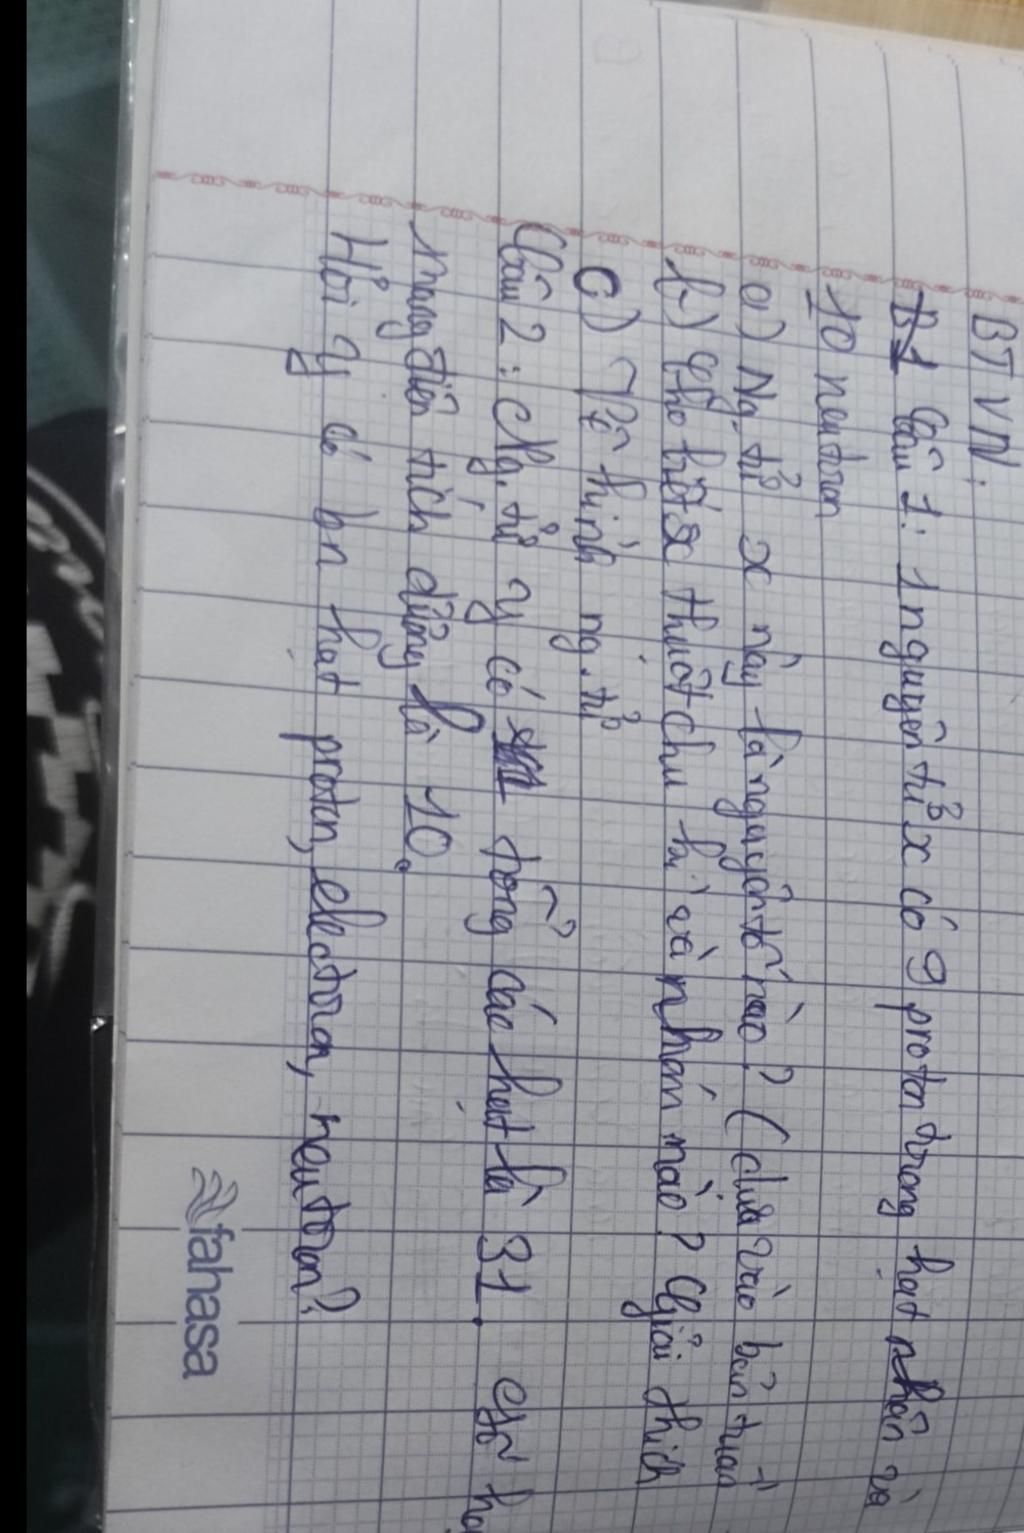 BTVN:
Câu 1: 1 nguyên tử x có 9 proton trong hạt nhân và
10 neutron
a) Ng. tử x này là nguyên tố nào? (dựa vào bản tuần
b) Cho biết x thuộc chu kì và nhóm nào? Giải thích
c) Vẽ hình ng. tử
Câu 2: Ng. tử y có tổng các hạt là 31. Số hạ
mang điện tích dương là 10.
Hỏi y có bn hạt proton, electron, neutron?
fahasa